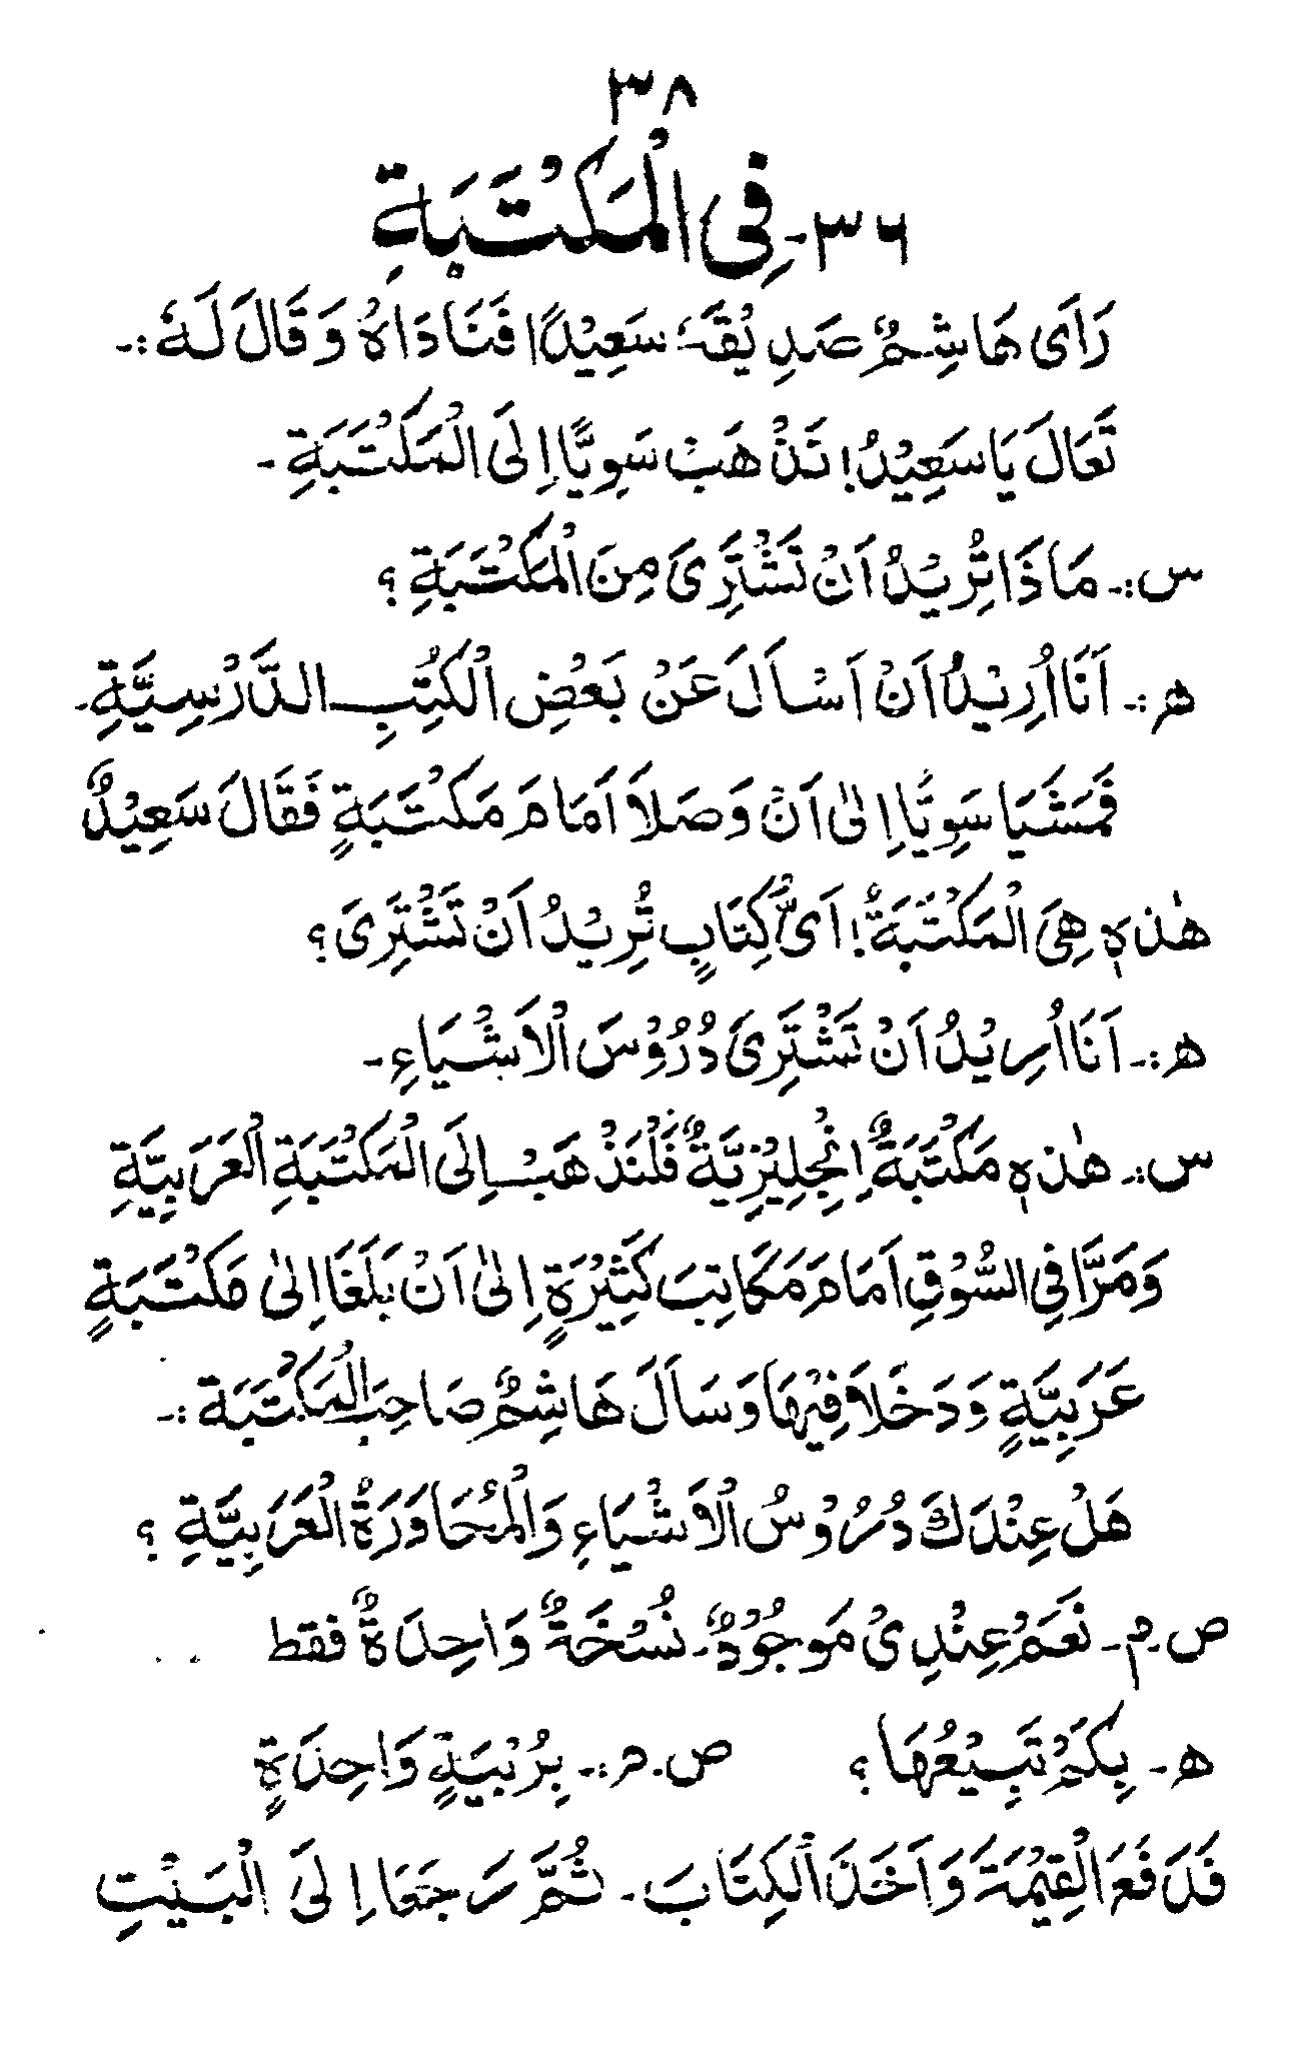 ٣٨
٣٦- فِى الْمَكْتَبَةِ
رَاَى هَاشِمٌ صَدِيْقَهٗ سَعِيْدًا فَنَادَاهُ وَقَالَ لَهٗ:-
تَعَالَ يَا سَعِيْدُ! نَذْهَبْ سَوِيًّا اِلَى الْمَكْتَبَةِ-
س:- مَاذَا تُرِيْدُ اَنْ تَشْتَرِىَ مِنَ الْمَكْتَبَةِ؟
ھ:- اَنَا اُرِيْدُ اَنْ اَسْاَلَ عَنْ بَعْضِ الْكُتُبِ الدَّرْسِيَّةِ-
فَمَشَيَا سَوِيًّا اِلٰى اَنْ وَصَلَا اَمَامَ مَكْتَبَةٍ فَقَالَ سَعِيْدٌ
هٰذِهٖ هِىَ الْمَكْتَبَةُ! اَىَّ كِتَابٍ تُرِيْدُ اَنْ تَشْتَرِىَ؟
ھ:- اَنَا اُرِيْدُ اَنْ تَشْتَرِىَ دُرُوْسَ الْاَشْيَاءِ-
س:- هٰذِهٖ مَكْتَبَةٌ اِنْجِلِيْزِيَّةٌ فَلْنَذْهَبْ اِلَى الْمَكْتَبَةِ الْعَرَبِيَّةِ
وَمَرَّا فِى السُّوْقِ اَمَامَ مَكَاتِبَ كَثِيْرَةٍ اِلٰى اَنْ بَلَغَا اِلٰى مَكْتَبَةٍ
عَرَبِيَّةٍ وَدَخَلَا فِيْهَا وَسَاَلَ هَاشِمٌ صَاحِبَ الْمَكْتَبَةِ:-
هَلْ عِنْدَكَ دُرُوْسُ الْاَشْيَاءِ وَالْمُحَاوَرَةُ الْعَرَبِيَّةِ؟
ص.م- نَعَمْ عِنْدِىْ مَوْجُوْدٌ- نُسْخَةٌ وَاحِدَةٌ فقط
ھ- بِكَمْ تَبِيْعُهَا؟ ص.م:- بِرُبِيَةٍ وَاحِدَةٍ
فَدَفَعَ الْقِيْمَةَ وَاَخَذَ الْكِتَابَ- ثُمَّ رَجَعَا اِلَى الْبَيْتِ